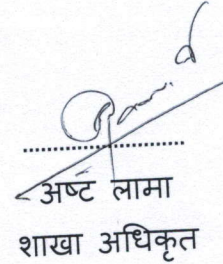 अष्ट लामा
शाखा अधिकृत